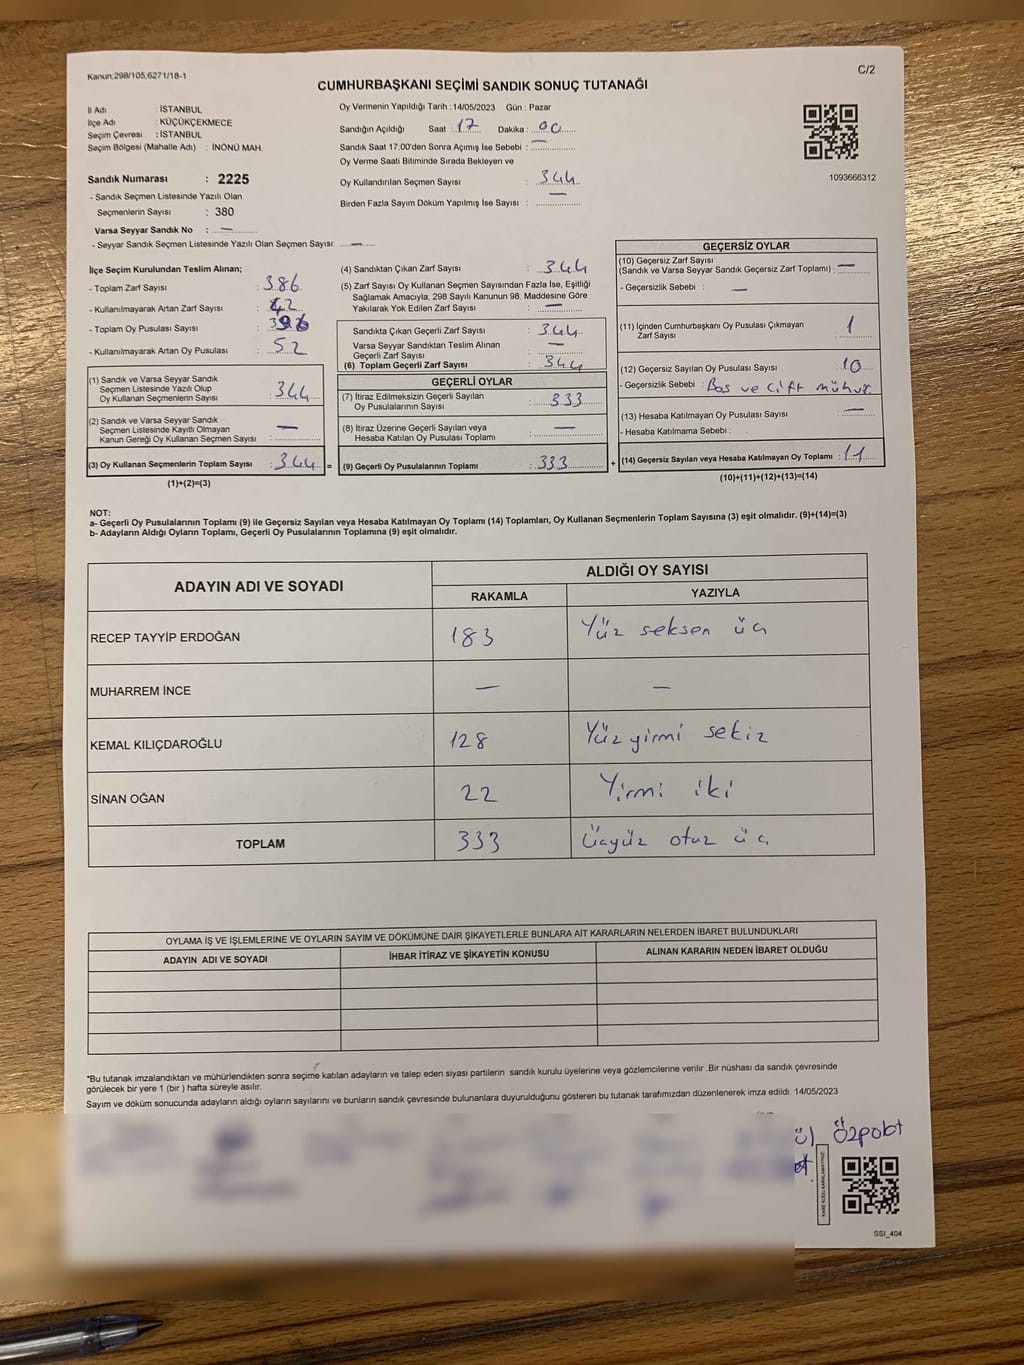 Kanun:298/105,6271/18-1
C/2
CUMHURBAŞKANI SEÇİMİ SANDIK SONUÇ TUTANAĞI
İl Adı : İSTANBUL
İlçe Adı : KÜÇÜKÇEKMECE
Seçim Çevresi : İSTANBUL
Seçim Bölgesi (Mahalle Adı) : İNÖNÜ MAH.
Sandık Numarası : 2225
- Sandık Seçmen Listesinde Yazılı Olan
Seçmenlerin Sayısı : 380
Varsa Seyyar Sandık No : —
- Seyyar Sandık Seçmen Listesinde Yazılı Olan Seçmen Sayısı: —
Oy Vermenin Yapıldığı Tarih :14/05/2023 Gün : Pazar
Sandığın Açıldığı Saat : 17 Dakika : 00
Sandık Saat 17:00'den Sonra Açımış İse Sebebi : —
Oy Verme Saati Bitiminde Sırada Bekleyen ve
Oy Kullandırılan Seçmen Sayısı : 344
Birden Fazla Sayım Döküm Yapılmış İse Sayısı : —
1093666312
İlçe Seçim Kurulundan Teslim Alınan;
- Toplam Zarf Sayısı : 386
- Kullanılmayarak Artan Zarf Sayısı : 42
- Toplam Oy Pusulası Sayısı : 396
- Kullanılmayarak Artan Oy Pusulası : 52
(1) Sandık ve Varsa Seyyar Sandık
Seçmen Listesinde Yazılı Olup
Oy Kullanan Seçmenlerin Sayısı : 344
(2) Sandık ve Varsa Seyyar Sandık
Seçmen Listesinde Kayıtlı Olmayan
Kanun Gereği Oy Kullanan Seçmen Sayısı : —
(3) Oy Kullanan Seçmenlerin Toplam Sayısı : 344 =
(1)+(2)=(3)
(4) Sandıktan Çıkan Zarf Sayısı : 344
(5) Zarf Sayısı Oy Kullanan Seçmen Sayısından Fazla İse, Eşitliği
Sağlamak Amacıyla; 298 Sayılı Kanunun 98. Maddesine Göre
Yakılarak Yok Edilen Zarf Sayısı : —
Sandıkta Çıkan Geçerli Zarf Sayısı : 344
Varsa Seyyar Sandıktan Teslim Alınan
Geçerli Zarf Sayısı : —
(6) Toplam Geçerli Zarf Sayısı : 344
GEÇERLİ OYLAR
(7) İtiraz Edilmeksizin Geçerli Sayılan
Oy Pusulalarının Sayısı : 333
(8) İtiraz Üzerine Geçerli Sayılan veya
Hesaba Katılan Oy Pusulası Toplamı : —
(9) Geçerli Oy Pusulalarının Toplamı : 333 +
GEÇERSİZ OYLAR
(10) Geçersiz Zarf Sayısı
(Sandık ve Varsa Seyyar Sandık Geçersiz Zarf Toplamı) : —
- Geçersizlik Sebebi : —
(11) İçinden Cumhurbaşkanı Oy Pusulası Çıkmayan
Zarf Sayısı : 1
(12) Geçersiz Sayılan Oy Pusulası Sayısı : 10
- Geçersizlik Sebebi : Boş ve çift mühür.
(13) Hesaba Katılmayan Oy Pusulası Sayısı : —
- Hesaba Katılmama Sebebi :
(14) Geçersiz Sayılan veya Hesaba Katılmayan Oy Toplamı : 11
(10)+(11)+(12)+(13)=(14)
NOT:
a- Geçerli Oy Pusulalarının Toplamı (9) ile Geçersiz Sayılan veya Hesaba Katılmayan Oy Toplamı (14) Toplamları, Oy Kullanan Seçmenlerin Toplam Sayısına (3) eşit olmalıdır. (9)+(14)=(3)
b- Adayların Aldığı Oyların Toplamı, Geçerli Oy Pusulalarının Toplamına (9) eşit olmalıdır.
ADAYIN ADI VE SOYADI
ALDIĞI OY SAYISI
RAKAMLA YAZIYLA
RECEP TAYYİP ERDOĞAN 183 Yüz seksen üç
MUHARREM İNCE — —
KEMAL KILIÇDAROĞLU 128 Yüz yirmi sekiz
SİNAN OĞAN 22 Yirmi iki
TOPLAM 333 Üçyüz otuz üç
OYLAMA İŞ VE İŞLEMLERİNE VE OYLARIN SAYIM VE DÖKÜMÜNE DAİR ŞİKAYETLERLE BUNLARA AİT KARARLARIN NELERDEN İBARET BULUNDUKLARI
ADAYIN ADI VE SOYADI İHBAR İTİRAZ VE ŞİKAYETİN KONUSU ALINAN KARARIN NEDEN İBARET OLDUĞU
*Bu tutanak imzalandıktan ve mühürlendikten sonra seçime katılan adayların ve talep eden siyasi partilerin sandık kurulu üyelerine veya gözlemcilerine verilir .Bir nüshası da sandık çevresinde
görülecek bir yere 1 (bir ) hafta süreyle asılır.
Sayım ve döküm sonucunda adayların aldığı oyların sayılarını ve bunların sandık çevresinde bulunanlara duyurulduğunu gösteren bu tutanak tarafımızdan düzenlenerek imza edildi. 14/05/2023
Özpolat
KARE KODU KARALAMAYINIZ!
SSI_404